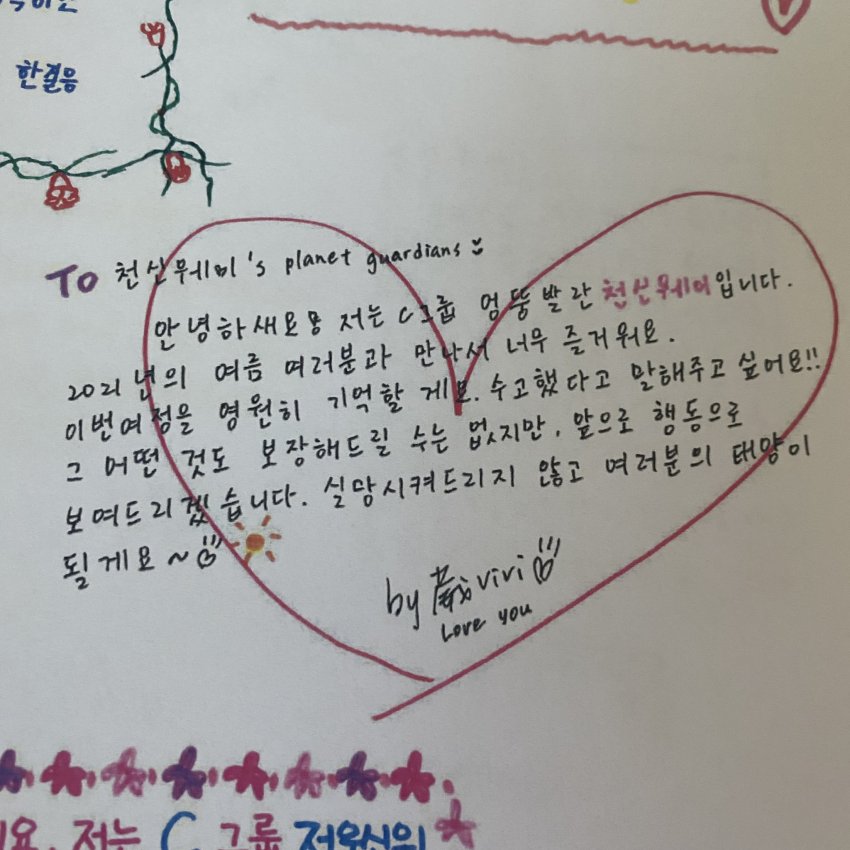 한결음
TO 천신웨이's planet guardians
안녕하새요 저는 C그룹 엄뚱발란 천신웨이입니다.
2021년의 여름 여러분과 만나서 너무 즐거워요.
이번여정을 영원히 기억할 게요. 수고했다고 말해주고 싶어요!!
그 어떤 것도 보장해드릴 수는 없지만, 앞으로 행동으로
보여드리겠습니다. 실망시켜드리지 않고 여러분의 태양이
될게요~
by vivi
Love you
요. 저는 C 그룹